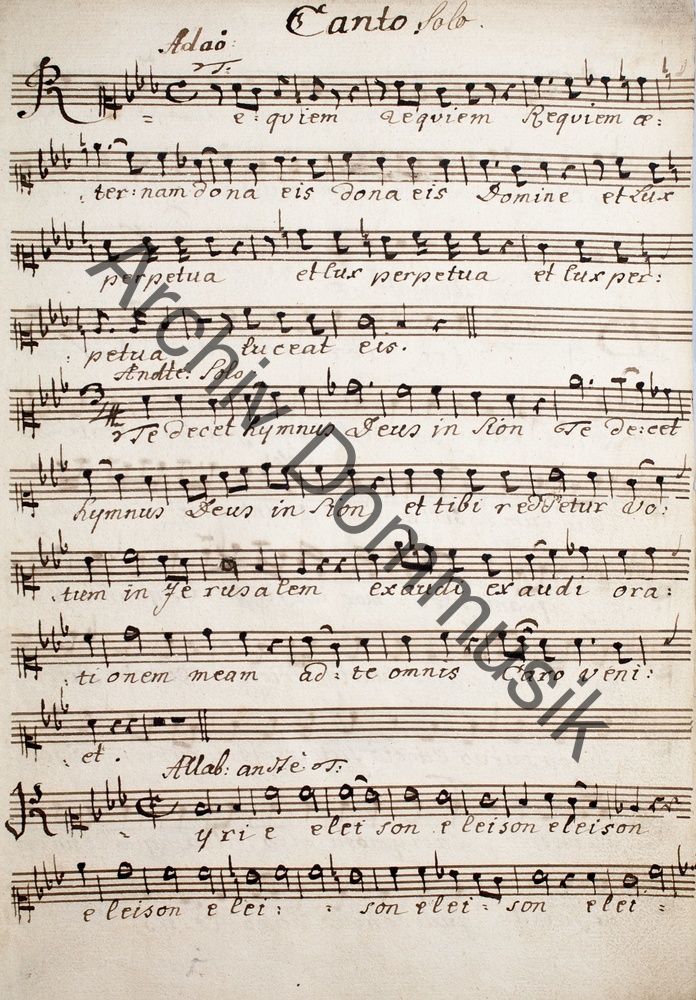 Canto Solo.
Adaō:
T:
R e:quiem Requiem Requiem æ:
ter:nam dona eis dona eis Domine et lux
perpetua et lux perpetua et lux per:
petua luceat eis.
Andte: Solo
Te decet hymnus Deus in Sion Te de:cet
hymnus Deus in Sion et tibi reddetur vo:
tum in Je rusalem exaudi exaudi ora:
ti onem meam ad: te omnis Caro veni:
et.
Allab: andte T:
K yri e elei son e leison eleison
e leison e lei : : son elei : son elei :
Archiv Dommusik